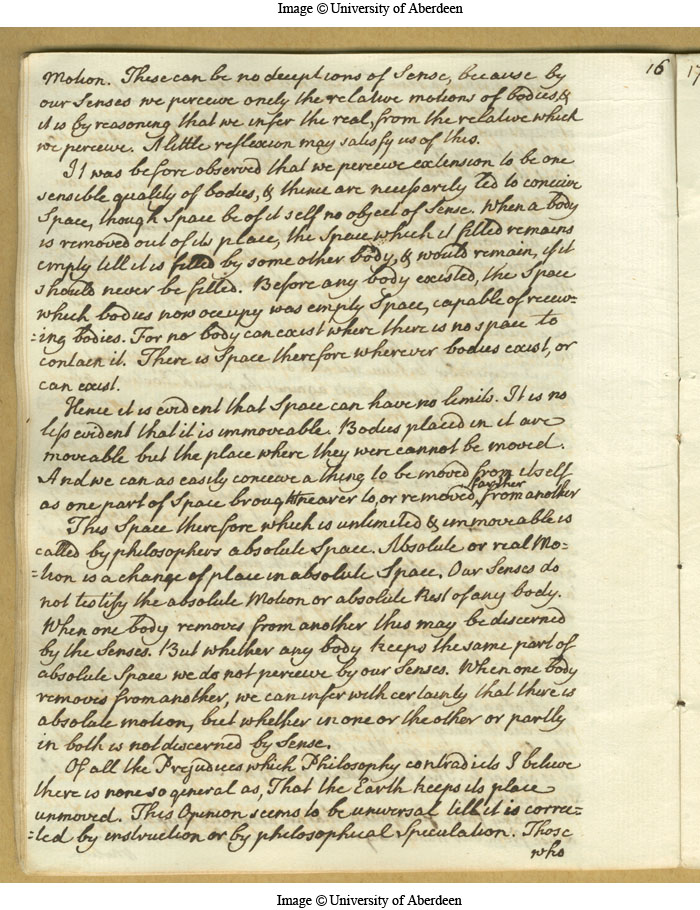 Image © University of Aberdeen
16
17
Motion. These can be no deceptions of Sense, because by
our Senses we perceive onely the relative motions of bodies, &
it is by reasoning that we infer the real, from the relative which
we perceive. A little reflexion may satisfy us of this.
It was before observed that we perceive extension to be one
sensible quality of bodies, & thence are necessarily led to conceive
Space, though Space be of it self no object of Sense. When a body
is removed out of its place, the Space which it filled remains
empty till it is filled by some other body, & would remain, if it
should never be filled. Before any body existed, the Space
which bodies now occupy was empty Space, capable of receiv-
=ing bodies. For no body can exist where there is no space to
contain it. There is Space therefore wherever bodies exist, or
can exist.
Hence it is evident that Space can have no limits. It is no
less evident that it is immoveable. Bodies placed in it are
moveable but the place where they were cannot be moved.
And we can as easily conceive a thing to be moved from it self
as one part of Space brought nearer to, or removed farther from another
This Space therefore which is unlimited & immoveable is
called by philosophers absolute Space. Absolute or real Mo=
=tion is a change of place in absolute Space. Our Senses do
not testify the absolute Motion or absolute Rest of any body.
When one body removes from another this may be discerned
by the Senses. But whether any body keeps the same part of
absolute Space we do not perceive by our Senses. When one body
removes from another, we can infer with certainty that there is
absolute motion, but whether in one or the other or partly
in both is not discerned by Sense.
Of all the Prejudices which Philosophy contradicts I believe
there is none so general as, That the Earth keeps its place
unmoved. This Opinion seems to be universal till it is correc=
=ted by instruction or by philosophical Speculation. Those
who
Image © University of Aberdeen